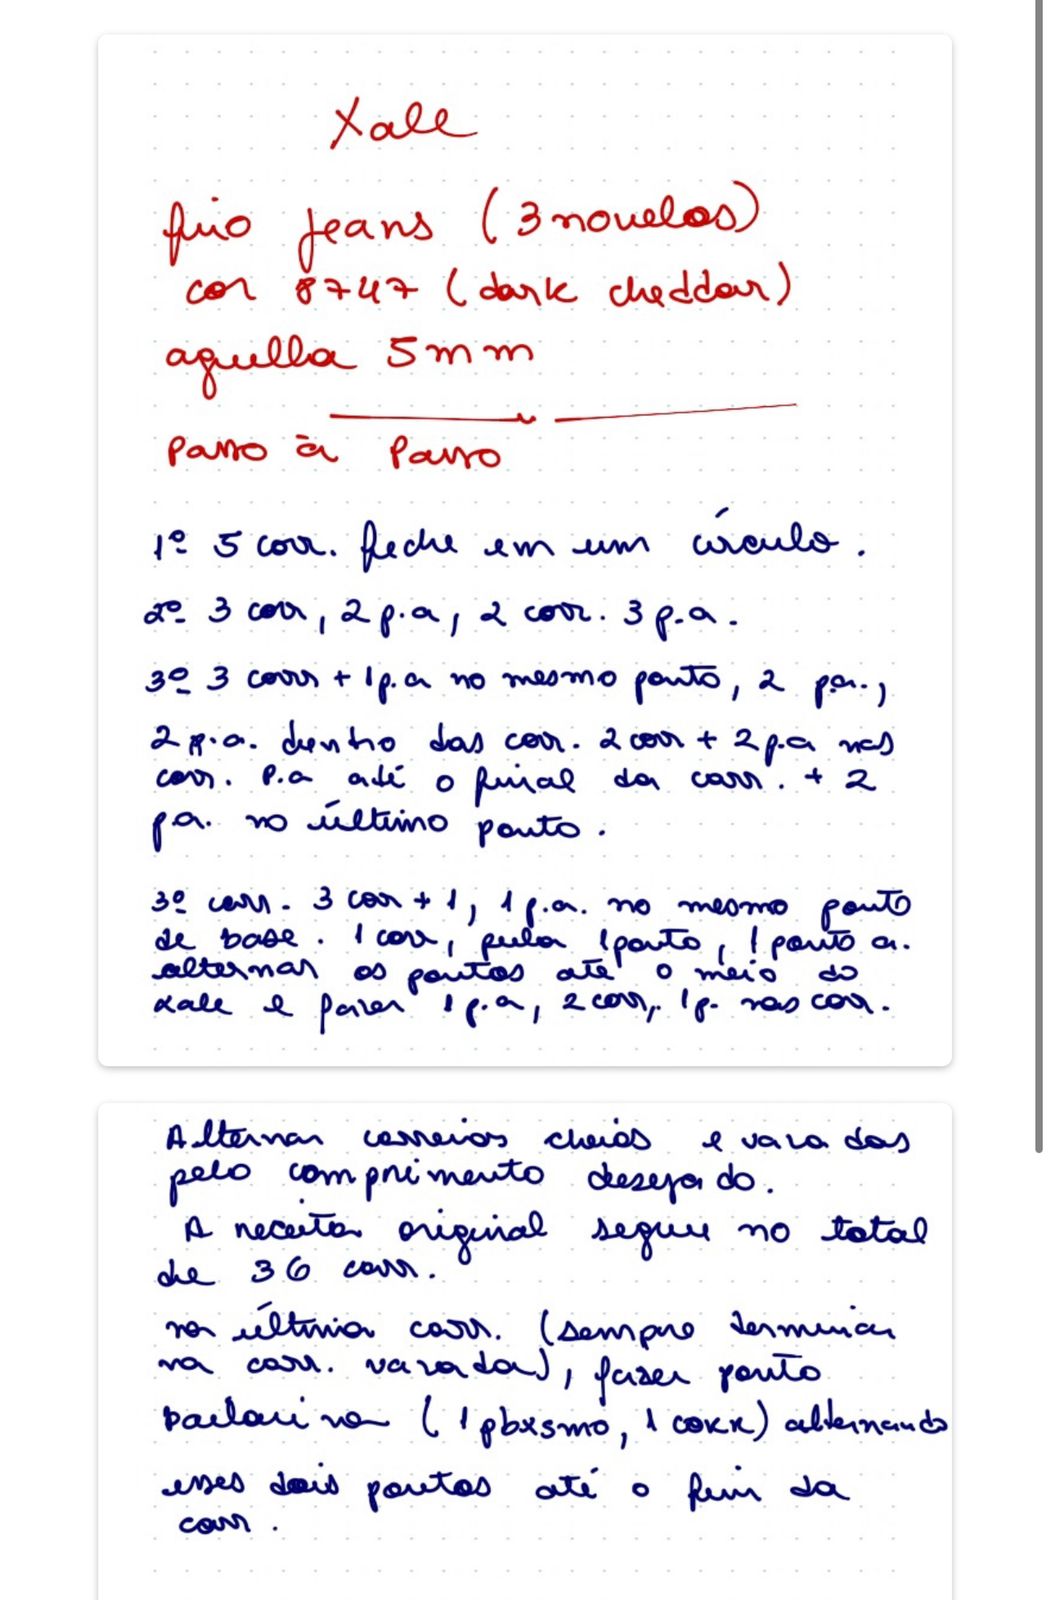 Xale
fio jeans (3 novelos)
cor 8747 (dark cheddar)
agulha 5mm
Passo à Passo
1º 5 corr. feche em um círculo.
2º 3 corr, 2 p.a, 2 corr. 3 p.a.
3º 3 corr + 1 p.a no mesmo ponto, 2 p.a.,
2 p.a. dentro das corr. 2 corr + 2 p.a nas
corr. P.a até o final da carr. + 2
p.a. no último ponto.
3º carr. 3 corr + 1, 1 p.a. no mesmo ponto
de base. 1 corr, pula 1 ponto, 1 ponto a.
alternar os pontos até o meio do
xale e fazer 1 p.a, 2 corr, 1 p. nas corr.
Alternar carreiras cheias e vazadas
pelo comprimento desejado.
A receita original segue no total
de 36 carr.
na última carr. (sempre terminar
na carr. vazada), fazer ponto
bailarina (1 pbxsmo, 1 corr) alternando
esses dois pontos até o fim da
carr.